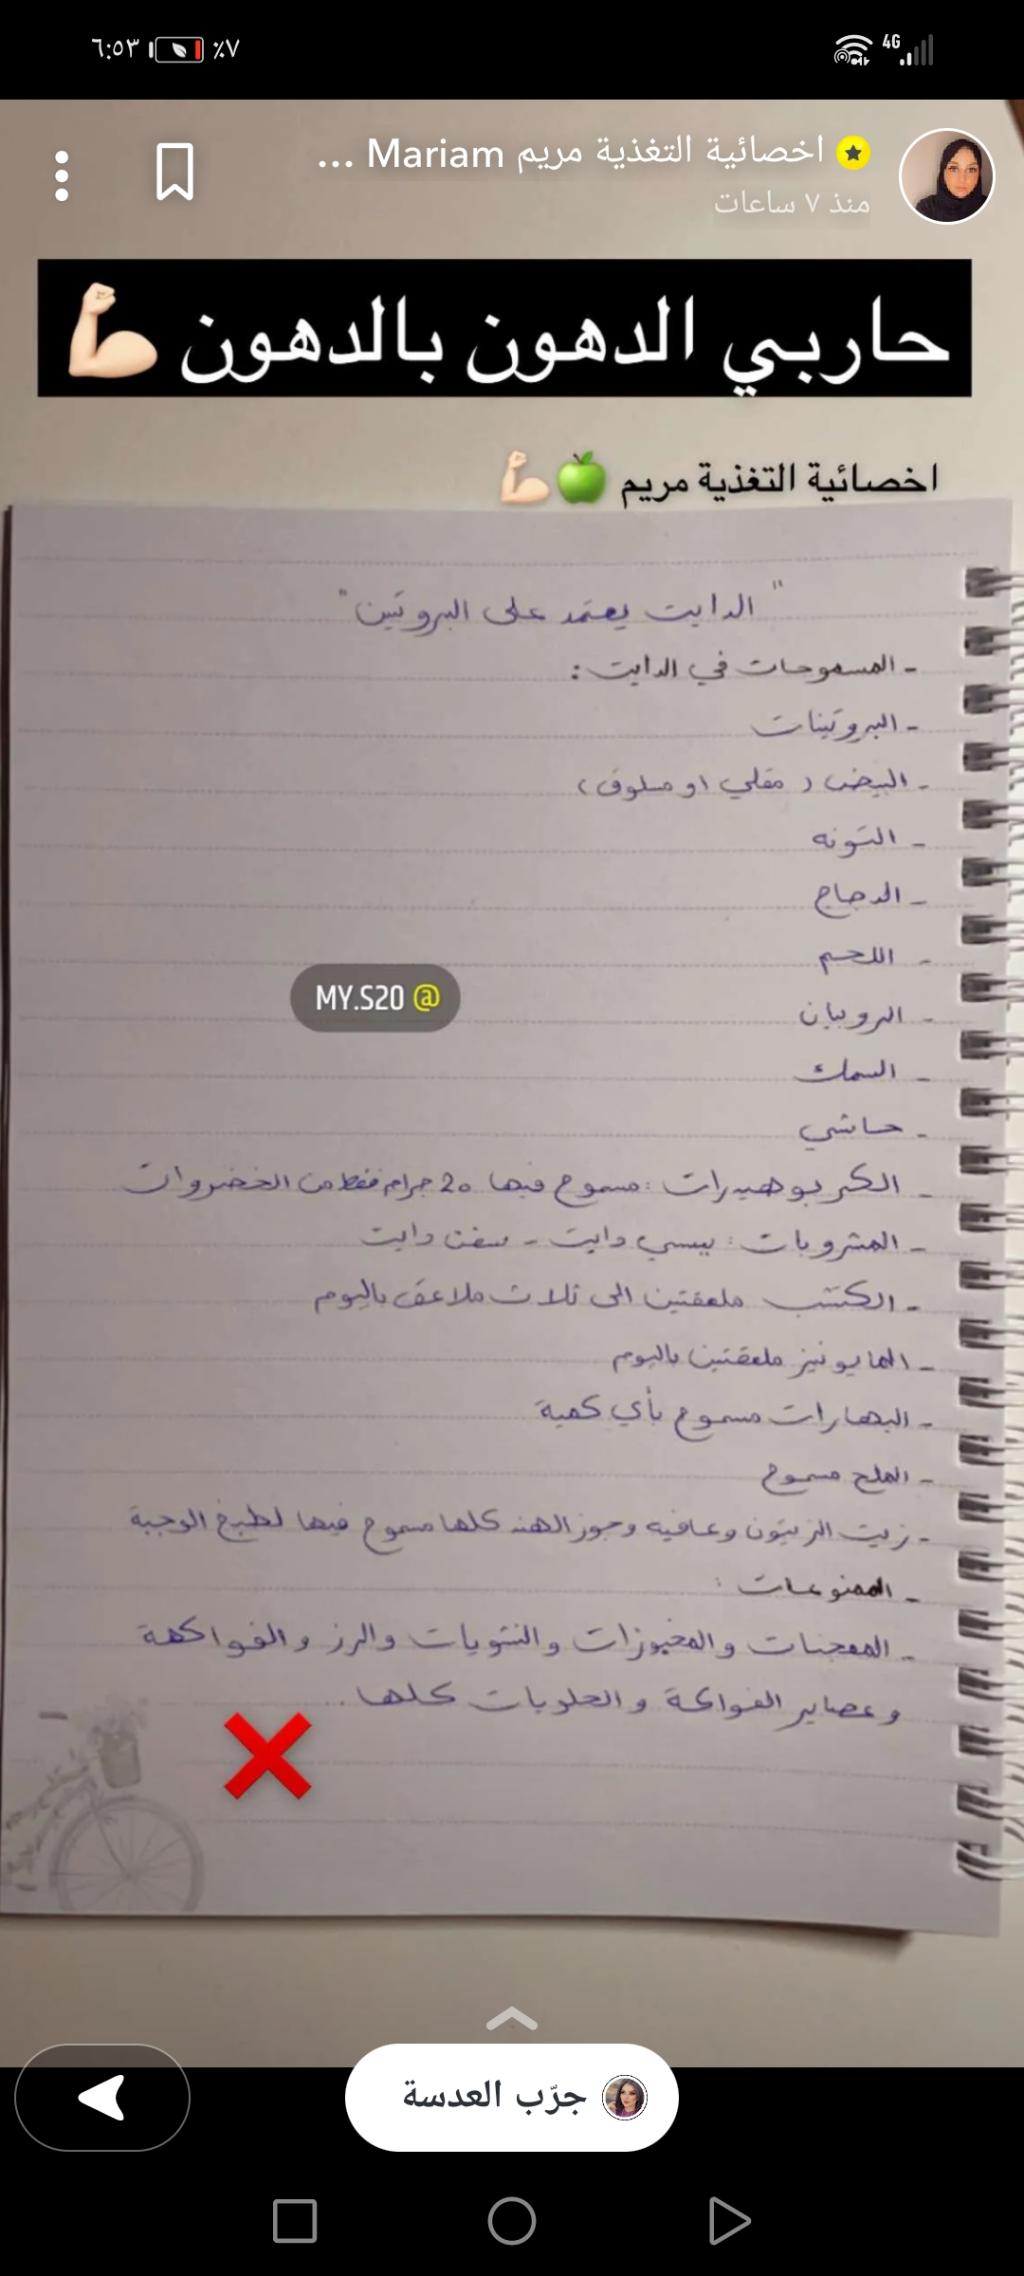 ٦:٥٣
٪٧
4G
اخصائية التغذية مريم Mariam ...
منذ ٧ ساعات
حاربي الدهون بالدهون 💪🏻
اخصائية التغذية مريم 🍏💪🏻
"الدايت يعتمد على البروتين"
- المسموحات في الدايت :
- البروتينات
- البيض ( مقلي او مسلوق )
- التونه
- الدجاج
- اللحم
- الروبيان
- السمك
- حاشي
- الكربوهيدرات : مسموح فيها 20 جرام فقط من الخضروات
- المشروبات : بيبسي دايت - سفن دايت
- الكتشب ملعقتين الى ثلاث ملاعق باليوم
- المايونيز ملعقتين باليوم
- البهارات مسموح بأي كمية
- الملح مسموح
- زيت الزيتون وعافيه وجوز الهند كلها مسموح فيها لطبخ الوجبة
- الممنوعات :
- المعجنات والمخبوزات والنشويات والرز والفواكهة
وعصاير الفواكة والحلويات كلها..
@ MY.S20
جرّب العدسة